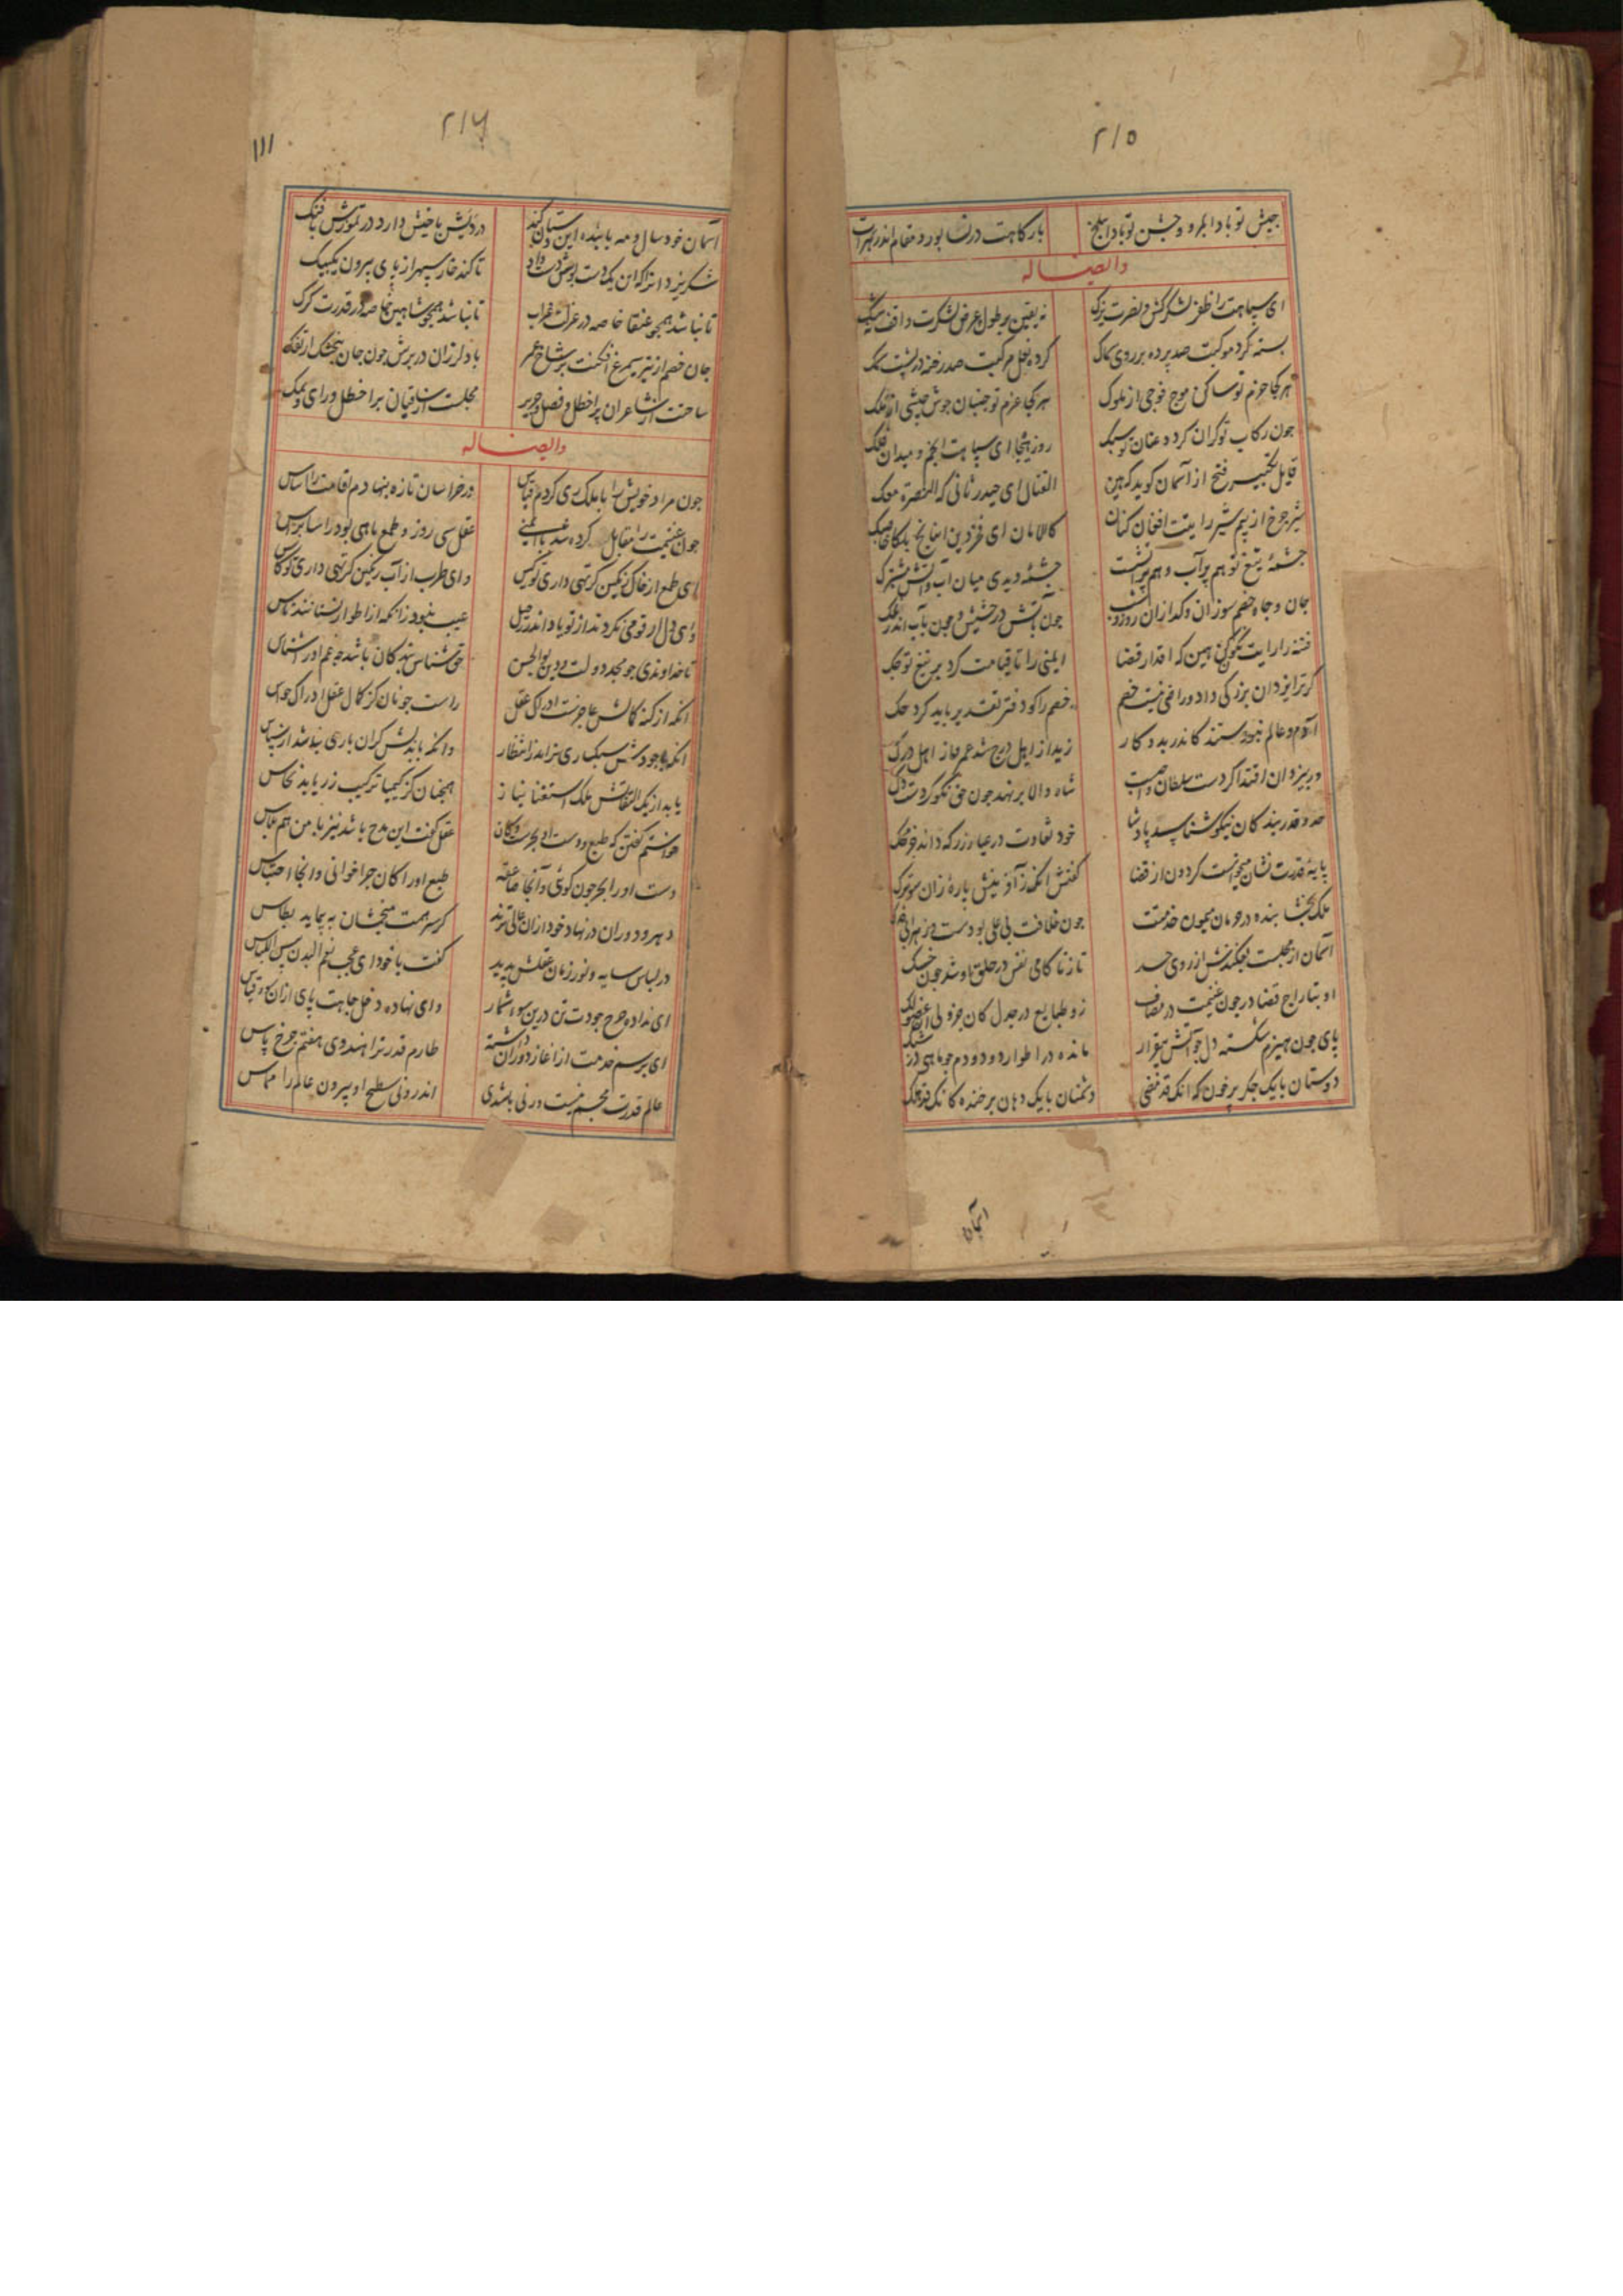 ۲۱۵
جیش تو بادا بمرو و جشن تو بادا ببلخ بارکاهت در نشابور و مقام اندر هرات
وایضاً له
ای سپاهت را ظفر لشکرکش و نصرت یزک نه یقین بر طول و عرض لشکرت واقف نه شک
بسته کرد موکبت صد پرده بر روی سماک کرده نعل مرکبت صد رخنه در پشت سمک
هرکجا حزم تو ساکن موج فوجی از ملوک هرکجا عزم تو جنبان جوش جیشی از ملک
چون رکاب تو کران کردد عنان تو سبک روز هیجا ای سپاهت انجم و میدان فلک
قایل تکبیر فتح از آسمان کوید که هین القتال ای حیدر ثانی که النصرة معک
شیر چرخ از بیم شیر رایتت افغان کنان کالامان ای فخر دین اینجا نه بلکا خاصک
چشمهٔ تیغ تو هم پر آب و هم پر آتشست چشمهٔ دیدی میان آب و آتش مشترک
جان و جاه خصم سوزان و کدازان روز و شب چون بآتش در حشیش و چون بآب اندر نمک
فتنه را رایت نکون کن هین که اقدار قضا ایمنی را تا قیامت کرد بر تیغ تو حک
کر ترا یزدان بزرکی داد و راضی نیست خصم خصم را کو دفتر تقدیر باید کرد حک
آدم و عالم نبودستند کاندر بدو کار زید از اهل درج شد عمرو از اهل درک
در بیزدان اقتدا کردست سلطان واجبست شاه والا برنهد چون حق نکو کردست دک
حد و قدر بندکان نیکو شناسد پادشا خود تفاوت در عیار زر که داند جز محک
پایهٔ قدرت نشان میخواست کردون از قضا کفتش آنک ز آفرینش پارهٔ زان سوترک
ملک بخشا بنده در حرمان میمون خدمتت چون خلافت بی علی بودست و زهرا بی فدک
آسمان از مجلست بفکندش از روی حسد تا ز ناکامی نفس در حلق او شد چون خسک
او بتاراج قضا در چون غنیمت در مصاف زو طبایع در جدل کان جزو لی العضو لک
پای چون هیزم شکسته دل چو آتش بیقرار مانده در اطوار دود و دم چو ماهی در شبک
دوستان با یک جکر پر خون که انک قد نفی دشمنان با یک دهان پر خنده کانک قد هلک
آسمان
۲۱۶
۱۱۱
آسمان خود سال و مه با بنده این دستان کند دردیش با خیش دارد در تموزش با فنک
شکر یزدانرا که این یکدست بوسش دست داد تا کند خار سپهر از پای بیرون یک بیک
تا نباشد همچو عنقا خاصه در عزلت غراب تا نباشد همچو شاهین خاصه در قدرت کرک
جان خصم از تیر سیمرغ افکنت بر شاخ عمر باد لرزان در برش چون جان کنجشک از تفک
ساحتت از شاعران پر اخطل و فضل و جریر مجلست از ساقیان پر اخطل و رای و یمک
وایضاً له
چون مراد خویش را با ملک ری کردم قیاس در خراسان تازه بنهادم اقامت را اساس
چون غنیمت را مقابل کرده شد با ایمنی عقل سی روز و طمع ماهی بود راسا براس
ای طمع از خاک رنکین کر تهی داری تو کیس وای طرب از آب رنکین کر تهی داری تو کاس
وای دل ار قومی نکردند از تو یاد اندر رحیل عیب نبود زانکه از اطوار نسناسند ناس
تا خداوندی چو مجد دولت و دین بوالحسن حق شناس بندکان باشد چه غم از ناشناس
انکه از کنه کمالش عاجزست ادراک عقل راست چونان کز کمال عقل ادراک حواس
انکه با جودش سبکباری نیاید ز انتظار وانکه با بذلش کران باری نباشد از سپاس
یابد از یک التفاتش ملک استغنا نیاز همچنان کز کیمیا ترکیب زر یابد نحاس
خواستم کفتن که طبع و دست او بحرست و کان عقل کفت این مدح باشد نیز با من هم پلاس
دست او را بحر چون کوئی و آنجا صاعقه طبع او را کان چرا خوانی و انجا احتباس
دهر و دوران در نهاد خود ازان عالی ترند کز سر همت منجمشان به پیماید بطاس
در لباس سایه و نور زمان عقلش بدید کفت با خود ای عجب نعم البدن بئس اللباس
ای نداده چرخ جودت تن درین سو از شمار وای نهاده دخل جاهت پای ازان سو از قیاس
ای برسم خدمت از آغاز دوران داشته طارم قدر ترا هندوی هفتم چرخ پاس
عالم قدرت مجسم نیست ورنی باشدی اندرونی سطح او بیرون عالم را مماس